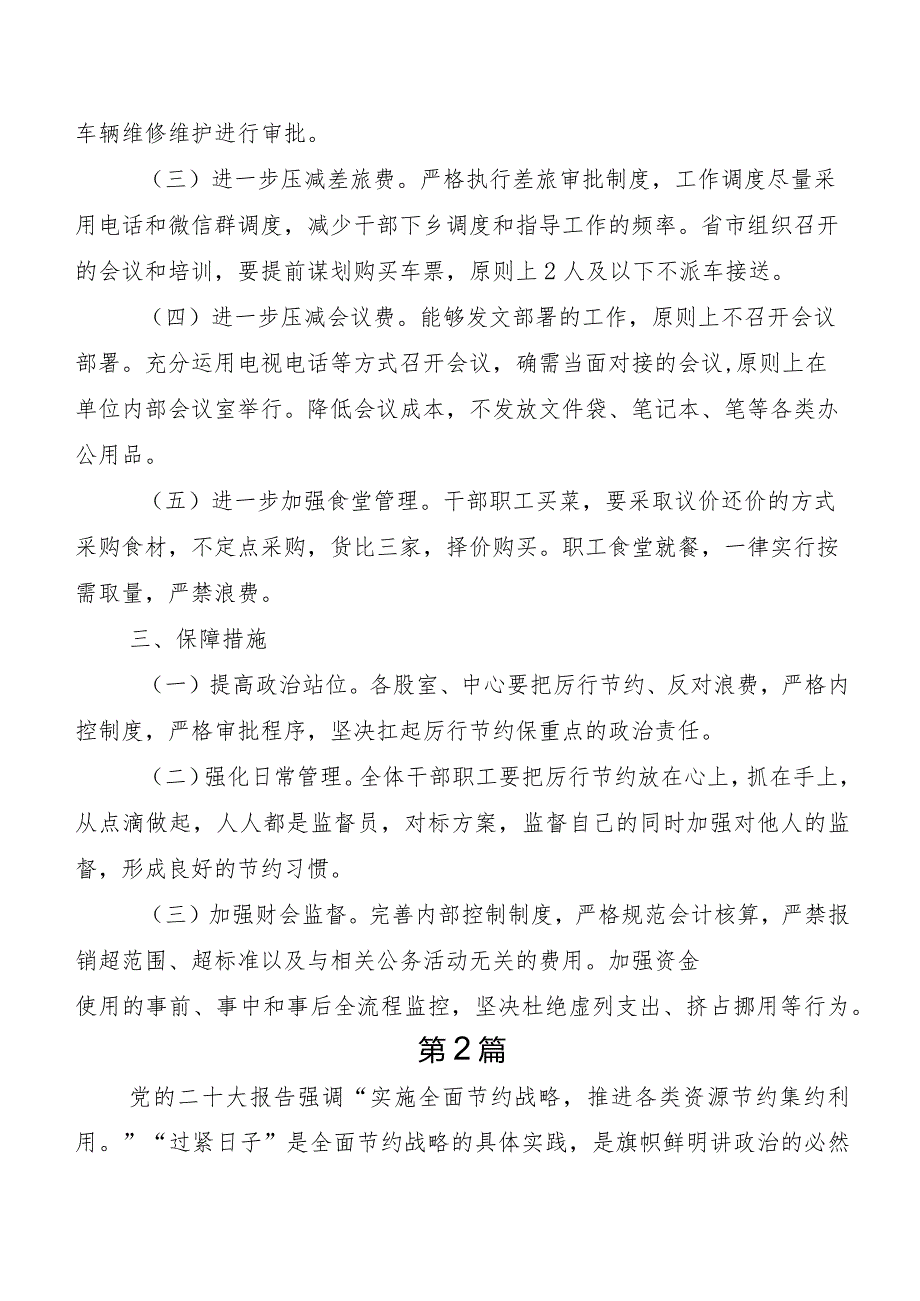 车辆维修维护进行审批。
（三）进一步压减差旅费。严格执行差旅审批制度，工作调度尽量采
用电话和微信群调度，减少干部下乡调度和指导工作的频率。省市组织召开
的会议和培训，要提前谋划购买车票，原则上2人及以下不派车接送。
（四）进一步压减会议费。能够发文部署的工作，原则上不召开会议
部署。充分运用电视电话等方式召开会议，确需当面对接的会议,原则上在
单位内部会议室举行。降低会议成本，不发放文件袋、笔记本、笔等各类办
公用品。
（五）进一步加强食堂管理。干部职工买菜，要采取议价还价的方式
采购食材，不定点采购，货比三家，择价购买。职工食堂就餐，一律实行按
需取量，严禁浪费。
三、保障措施
（一）提高政治站位。各股室、中心要把厉行节约、反对浪费，严格内
控制度，严格审批程序，坚决扛起厉行节约保重点的政治责任。
（二）强化日常管理。全体干部职工要把厉行节约放在心上，抓在手上，
从点滴做起，人人都是监督员，对标方案，监督自己的同时加强对他人的监
督，形成良好的节约习惯。
（三）加强财会监督。完善内部控制制度，严格规范会计核算，严禁报
销超范围、超标准以及与相关公务活动无关的费用。加强资金
使用的事前、事中和事后全流程监控，坚决杜绝虚列支出、挤占挪用等行为。
第2篇
党的二十大报告强调“实施全面节约战略，推进各类资源节约集约利
用。”“过紧日子”是全面节约战略的具体实践，是旗帜鲜明讲政治的必然